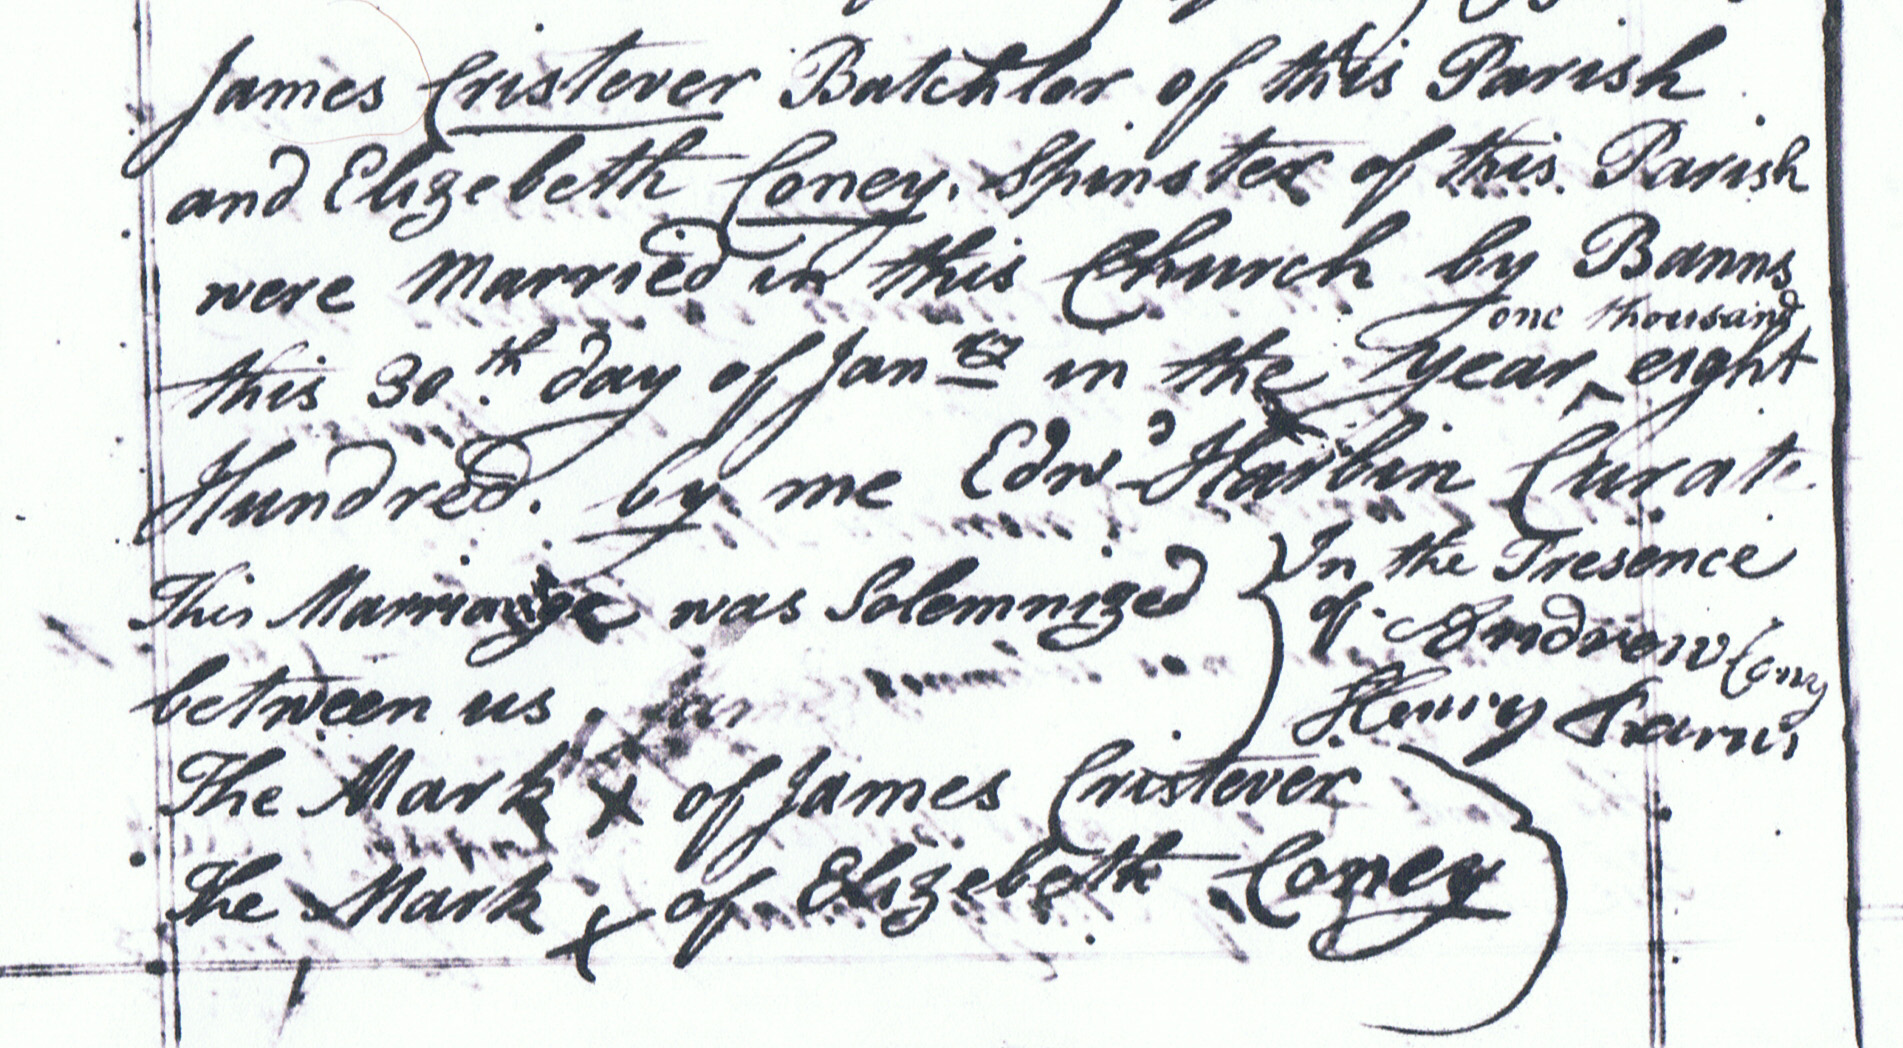 James Cristever Batchlor of this Parish
and Elizebeth Coney. Spinster of this Parish
were Married in this Church by Banns
this 30th. day of Janry in the year ^ one thousand eight
Hundred. by me Edwd Harbin Curate
This Marriage was Solemnized
between us.
In the Presence
of Andrew Cony
Henry
The Mark x of James Cristever
The Mark x of Elizebeth Coney